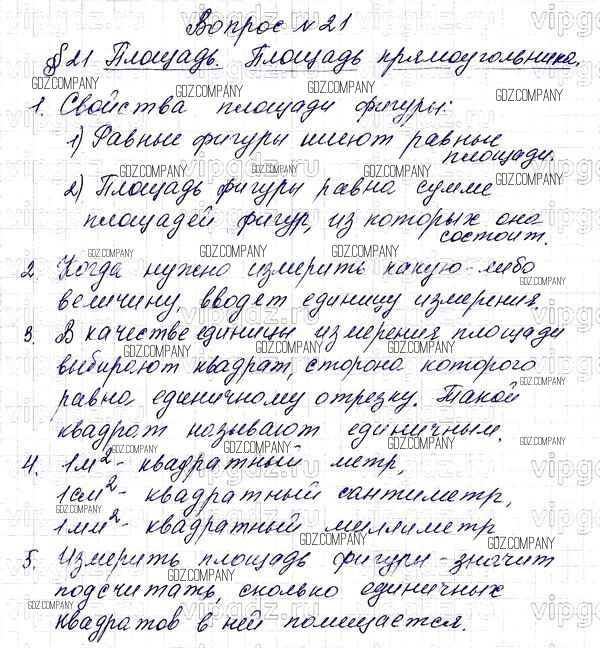 Вопрос №21
§21 Площадь. Площадь прямоугольника.
1. Свойства площади фигуры:
1) Равные фигуры имеют равные
площади.
2) Площадь фигуры равна сумме
площадей фигур, из которых она
состоит.
2. Когда нужно измерить какую-либо
величину, вводят единицу измерения.
3. В качестве единицы измерения площади
выбирают квадрат, сторона которого
равна единичному отрезку. Такой
квадрат называют единичным.
4. 1м² - квадратный метр,
1см² - квадратный сантиметр,
1мм² - квадратный миллиметр
5. Измерить площадь фигуры - значит
подсчитать, сколько единичных
квадратов в ней помещается.